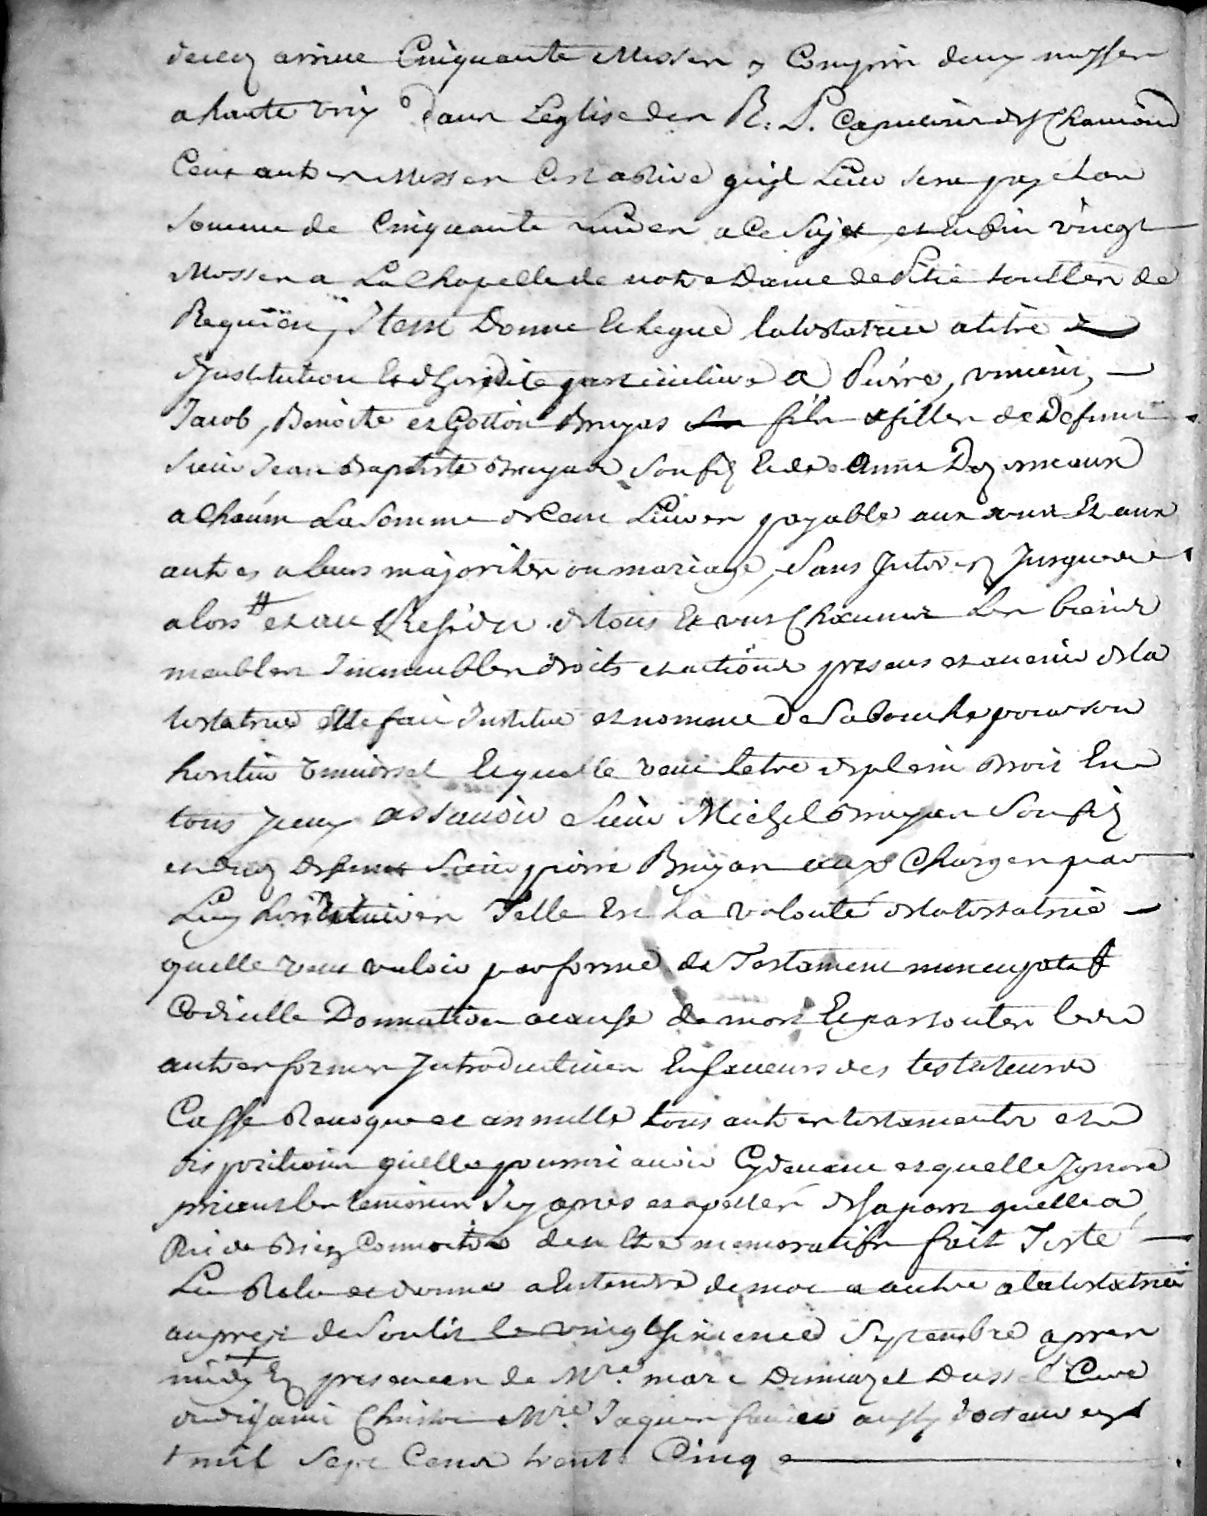 deces arrive Cinquante Messes y Compris deux messes
a haute voix dans Leglise des R. P. Capucins de st Chamond
Ceux autres Messes Cest a dire quil Leur sera paye Lan
somme de Cinquante Livres a Ce Sujet et Enfin vingt
Messes a La Chapelle de notre Dame de Pitie touttes de
Requiem, Item Donne & legue latestatrice atitre d
Jnstitution & dheredite particuliere a Pierre,
Jacob, Benoite et Gotton Bruyas fils & filles de Defunt
Sieur Jean Baptiste Bruyas Son fils & de Anne
a Chacun La Somme de Cent Livres payable aux uns Et aux
autres a leurs majorites ou mariage, Sans Jnterest Jusques a
alors et au Residu de tous Et uns Chacuns Les biens
meubles Jmmeubles droits et actions presens et avenir de la
testatrice Elle fait Jnstitue et nomme de Sa bouche pour son
heritier universel Lequel Elle veut letre de plein droit En
tous Jceux assavoir Sieur Michel Bruyas Son fils
et dud defunt Sieur pierre Bruyas aux Charges par
Luy hereditaires Telle Est La volonté de latestatrice
quelle veut valoir par forme de Testament nuncupatif
Codicille Donnation acause de mort Et par toutes les
autres formes Jntroduittes En faveurs des testateurs
Casse Revoque et annulle tous autres testaments et
dispositions quelle pourroit avoir Cy devant et quelle Jgnore
priant les temoins Jcy apres et apelles de sa part quelle a
dit de bien Connoitre den Etre memoratifs fait Testé
Lu Relu et donne a Entendre de mot a autre a latestatrice
aupres de Son lit le vingt Septembre apres
midy En presences de Mre. marc Cure
Mre Jaques aussy docteur
mil Sept Cens trente Cinq